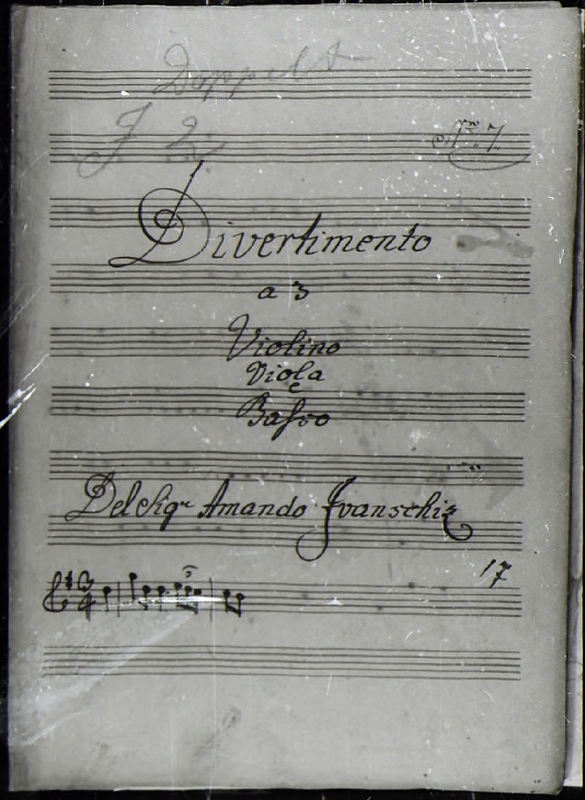 Doppelt
Nro. 7.
Divertimento
a 3
Violino
Viola
e
Basso
Del Sigr Amando Ivanschiz
17
3/4